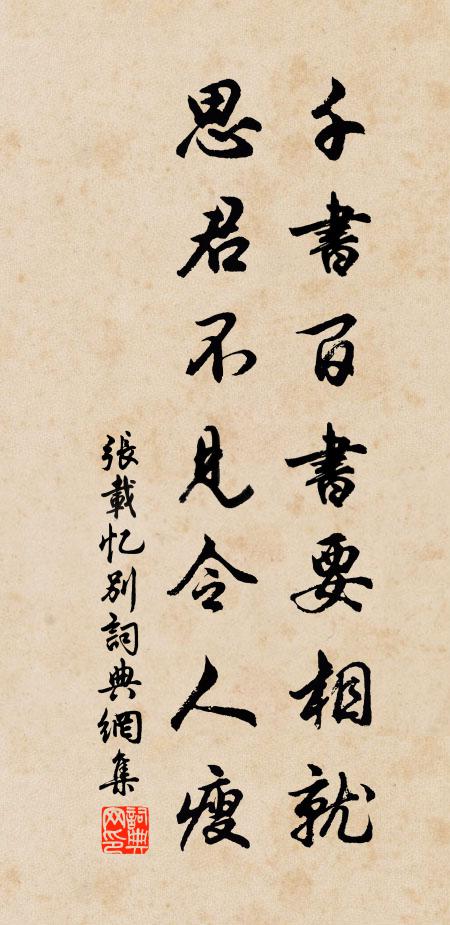 千書百書要相就
思君不見令人瘦
張載忆別詞典網集
詞典網印